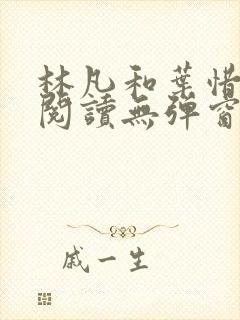 林凡和葉惜
閱讀無彈窗
戚一生